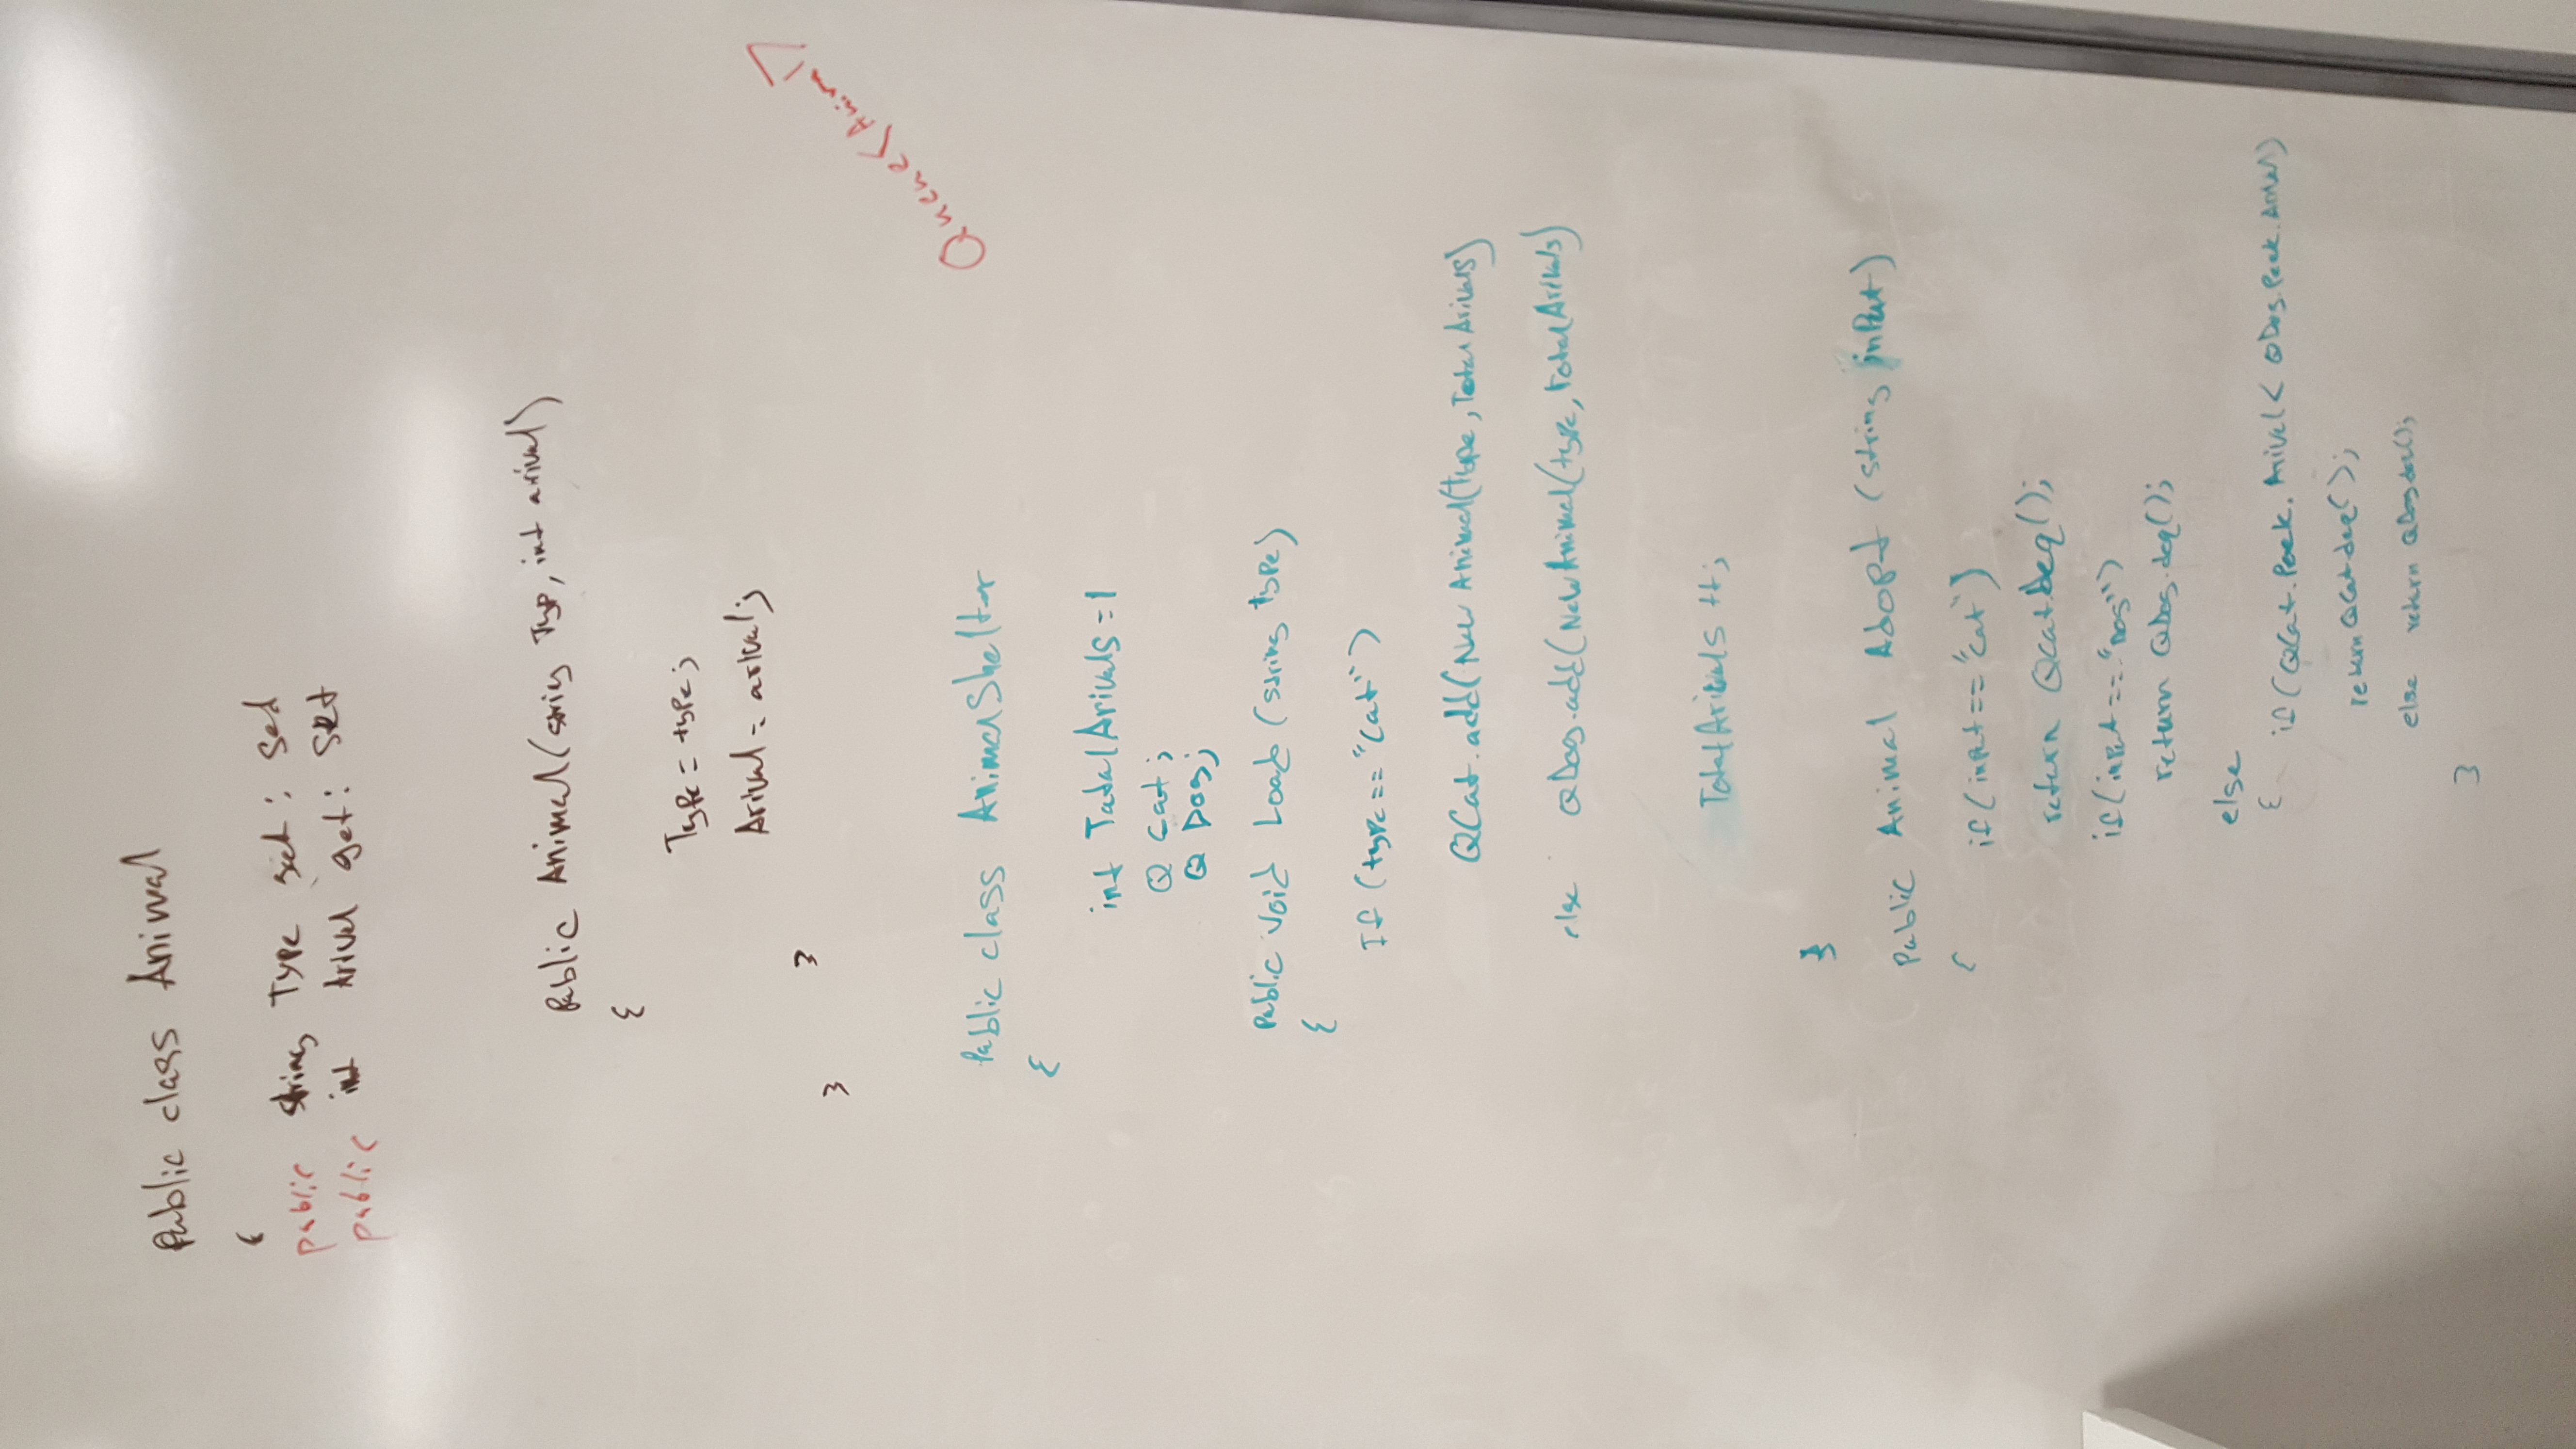 Public class Animal
{
public string Type get: set
public int Arival get: set
Public Animal(string Typ, int arival)
{
Type = type;
Arival = arival;
}
}
Queue<Animal>
Public class AnimalShelter
{
int TatalArivals = 1
Q Cat;
Q Dog;
Public void Load (string type)
{
If (type == "Cat")
QCat.add(New Animal(type, Total Arivals)
else QDog.add(New Animal(type, total Arivals)
TotalArivals ++;
}
Public Animal Adopt (string input)
{
if (input == "cat")
return Qcat.Deq();
if (input == "Dog")
return QDog.deq();
else
{ if (QCat.Peek.Arival < QDog.Peek.Arival)
return QCat.deq();
else return QDog.deq();
}